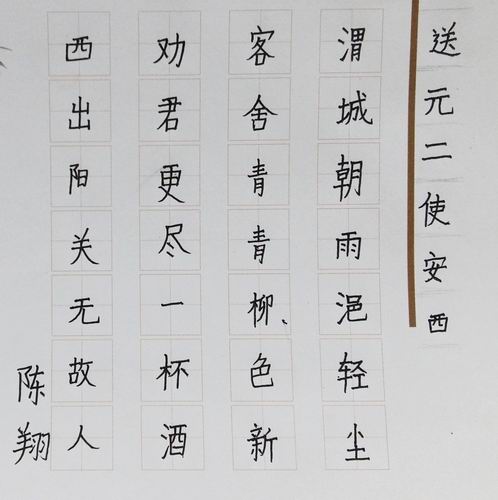 送元二使安西
渭城朝雨浥轻尘
客舍青青柳、色新
劝君更尽一杯酒
西出阳关无故人
陈翔